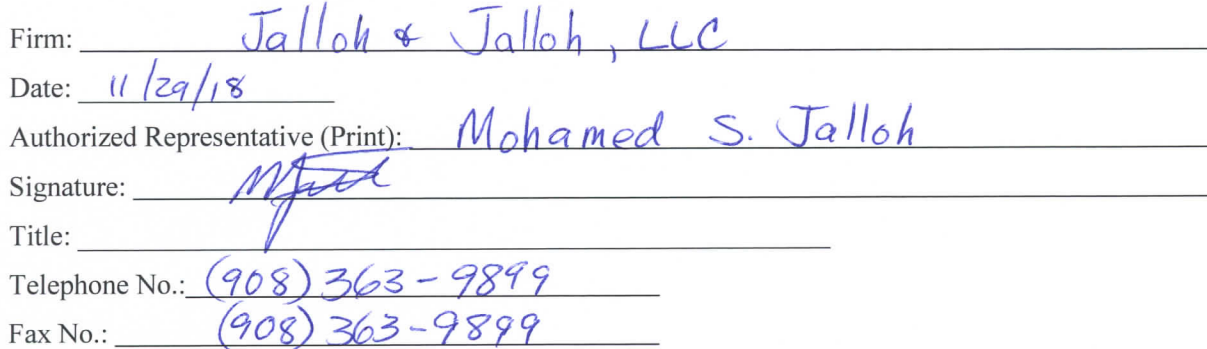 Firm: Jalloh & Jalloh, LLC
Date: 11/29/18
Authorized Representative (Print): Mohamed S. Jalloh
Signature:
Title:
Telephone No.: (908) 363-9899
Fax No.: (908) 363-9899